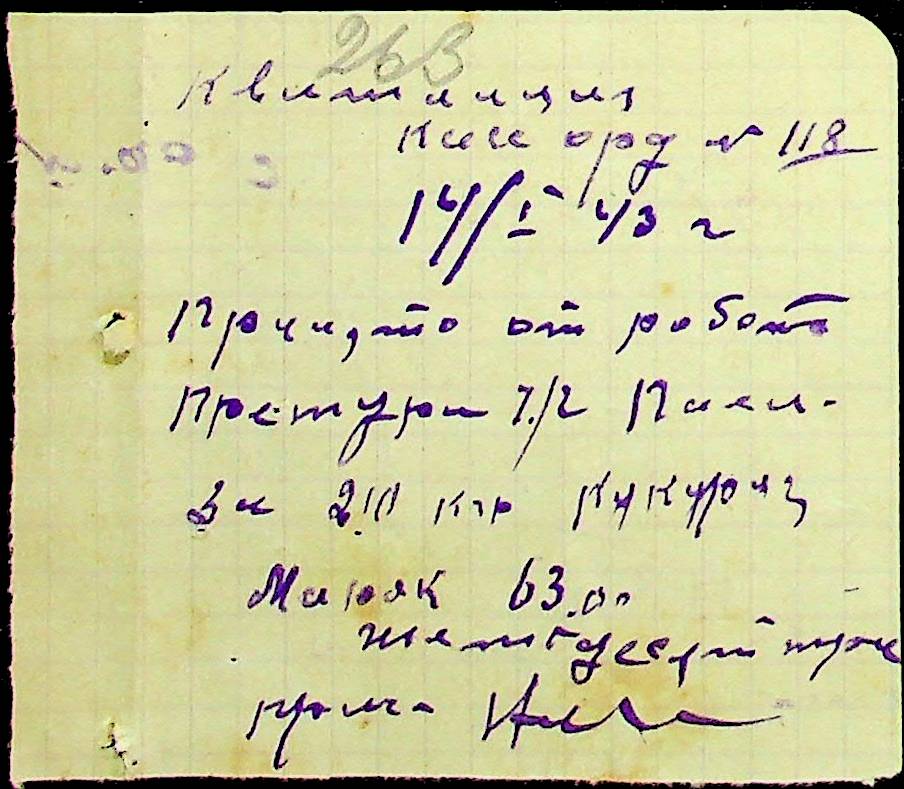 26в
Квитанция
касс орд № 118
14/I 43 г
Принято от работ
Претури
За 210 кгр кукуруз
Марок 63.00
шестьдесят три